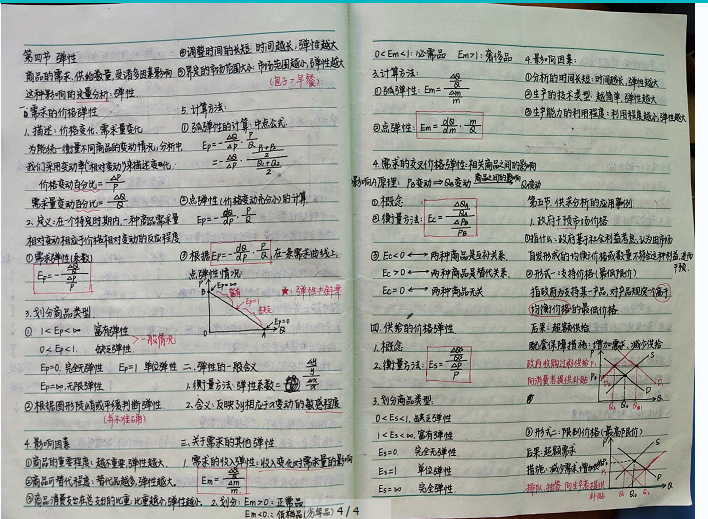 第四节 弹性
商品的需求、供给数量,受诸多因素影响
这种影响的定量分析:弹性.
一、需求的价格弹性
1. 描述:价格变化、需求量变化
为能统一衡量不同商品的变动情况,分析中
我们采用变动率("相对变动")来描述变化.
价格变动百分比 = ΔP/P
需求量变动百分比 = ΔQ/Q
2. 定义:在一个特定时期内,一种商品需求量
相对变动相应于价格相对变动的反应程度
①需求弹性(系数)
Ep = - (ΔQ/Q)/(ΔP/P)
3. 划分商品类型
① 1<Ep<∞ 富有弹性
0<Ep<1. 缺乏弹性 >一般情况
Ep=0. 完全无弹性 Ep=1 单位弹性
Ep=∞. 无限弹性
②根据图形陡峭或平缓判断弹性.
(有不准确)
4. 影响因素
①商品的重要程度:越不重要,弹性越大.
②商品可替代程度:替代品越多,弹性大.
③商品消费支出在总支出的比重:比重越小,弹性越小.
④调整时间的长短 时间越长,弹性越大
⑤界定的市场范围大小:市场范围越小,弹性越大
(包子>早餐)
5. 计算方法:
①弧弹性的计算:中点公式
②点弹性(价格变动充分小)的计算
Ep = - dQ/dP · P/Q
③根据 Ep = - dQ/dP · P/Q 在一条需求曲线上,
点弹性情况.
P
B
Ep=∞
富有
Ep=1
缺乏
Ep=0
A
Q
★:弹性≠斜率
二、弹性的一般含义
1. 衡量方法:弹性系数 =
2. 含义:反映y相应于x变动的敏感程度
三、关于需求的其他弹性
1. 需求的收入弹性:收入变化对需求量的影响
Em = (ΔQ/Q)/(Δm/m)
2. 划分:Em>0:正常品
Em<0:低档品
4/4
0<Em<1:必需品 Em>1:奢侈品
3. 计算方法:
①弧弹性:Em = (ΔQ/Q)/(Δm/m)
②点弹性:Em = dQ/dm · m/Q
4. 需求的交叉价格弹性:相关商品之间的影响
影响A原理:PB变动⟹QB变动 商品之间的影响 QA变动
①概念
②衡量方法:Ec = (ΔQA/QA)/(ΔPB/PB)
Ec<0 ⟷ 两种商品是互补关系.
Ec>0 ⟷ 两种商品是替代关系.
Ec=0 ⟷ 两种商品无关
四、供给的价格弹性
1. 概念
2. 衡量方法:Es = (ΔQ/Q)/(ΔP/P)
3. 划分商品类型:
0<Es<1. 缺乏弹性
1<Es<∞. 富有弹性
Es=0. 完全无弹性
Es=1 单位弹性
Es=∞ 完全弹性
4. 影响因素:
①分析的时间长短:时间越长,弹性越大
②生产的技术类型:越简单,弹性越大
③生产能力的利用程度:利用程度越小,弹性越大
第五节. 供求分析的应用事例
1. 政府干预市场价格
①指什么:政府基于社会利益考虑,认为由市场
自发形成的均衡价格或数量不符合这种利益,进而
干预.
②形式一:支持价格(最低限价)
指政府为支持某一产品,对产品规定一个高于
均衡价格的最低价格
后果:超额供给
配套保障措施:增加需求、减少供给
政府收购过剩供给
向消费者提供补贴
③形式二:限制价格(最高限价)
后果:超额需求
措施:减少需求,增加供给
排队、抽签 向生产者提供
补贴